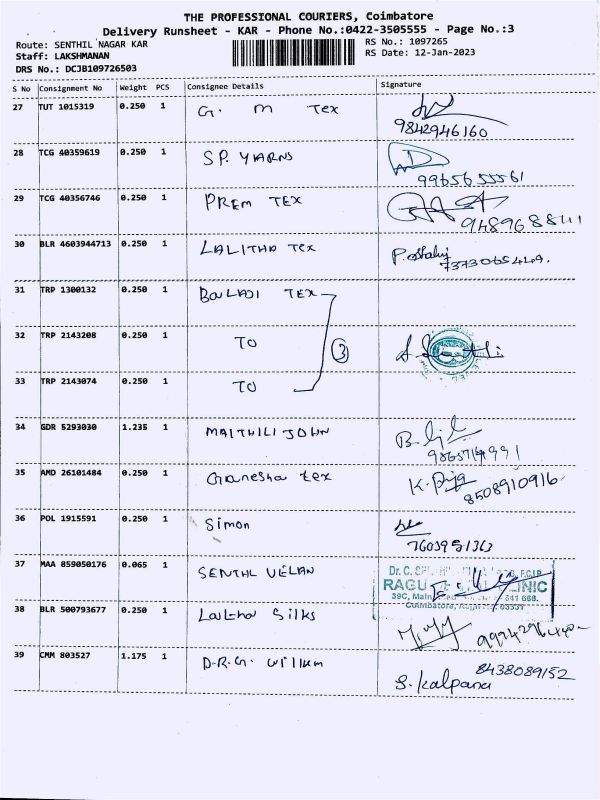 THE PROFESSIONAL COURIERS, Coimbatore
Delivery Runsheet - KAR - Phone No.:0422-3505555 - Page No.:3
Route: SENTHIL NAGAR KAR
RS No.: 1097265
Staff: LAKSHMANAN
RS Date: 12-Jan-2023
DRS No.: DCJB109726503
S No Consignment No Weight PCS Consignee Details Signature
27 TUT 1015319 0.250 1 G. M Tex
9842946160
28 TCG 40359619 0.250 1 S.P. YARNS
9965655561
29 TCG 40356746 0.250 1 PREM TEX
30 BLR 4603944713 0.250 1 LALITHA Tex
7373065449.
31 TRP 1300132 0.250 1 TEX
32 TRP 2143208 0.250 1 TO 3
33 TRP 2143074 0.250 1 TO
34 GDR 5293030 1.235 1 MAITHILI JOHN
35 AMD 26101484 0.250 1 Ganesha tex
8508910916
36 POL 1915591 0.250 1 Simon
37 MAA 859050176 0.065 1 SENTHL VELAN
Dr. C.
RAGU
39C, Main
641 668.
Coimbatore,
38 BLR 500793677 0.250 1 Silks
39 CMM 803527 1.175 1 D.R.G.
8438089152
S. Kalpana